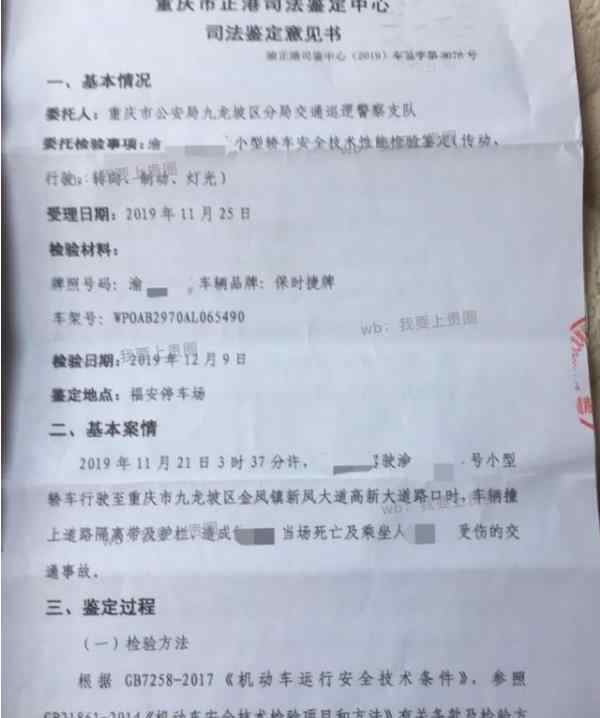 重庆市正港司法鉴定中心
司法鉴定意见书
渝正港司鉴中心（2019）车鉴字第3076号
一、基本情况
委托人：重庆市公安局九龙坡区分局交通巡逻警察支队
委托检验事项：渝 小型轿车安全技术性能检验鉴定（传动、
行驶、转向、制动、灯光）
受理日期：2019年11月25日
检验材料：
牌照号码：渝 ，车辆品牌：保时捷牌
车架号：WP0AB2970AL065490
检验日期：2019年12月9日
鉴定地点：福安停车场
二、基本案情
2019年11月21日3时37分许， 驾驶渝 号小型
轿车行驶至重庆市九龙坡区金凤镇新凤大道高新大道路口时，车辆撞
上道路隔离带及护栏，造成 当场死亡及乘坐人 受伤的交
通事故。
三、鉴定过程
（一）检验方法
根据 GB7258-2017《机动车运行安全技术条件》，参照
GB21861-2014《机动车安全技术检验项目和方法》有关条款及检验方
wb：我要上贵圈